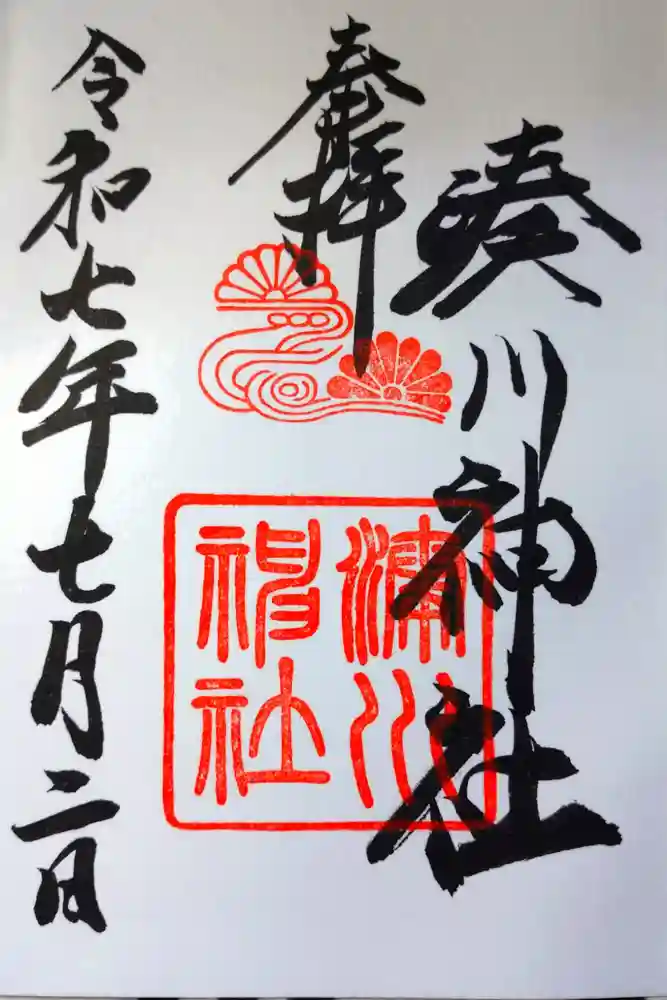 奉拝
湊川神社
湊川
神社
令和七年七月二日